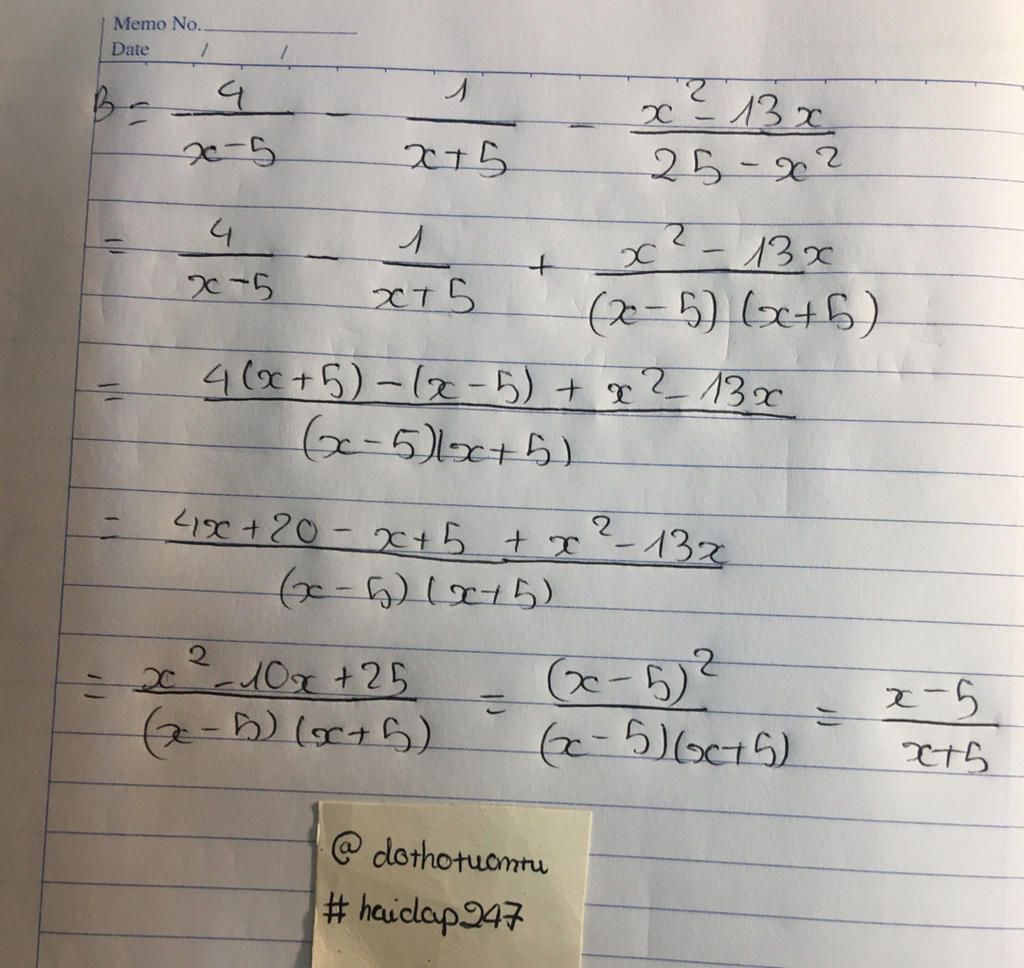 Memo No.
Date / /
B = 4/(x-5) - 1/(x+5) - (x²-13x)/(25-x²)
= 4/(x-5) - 1/(x+5) + (x²-13x)/((x-5)(x+5))
= (4(x+5)-(x-5)+x²-13x)/((x-5)(x+5))
= (4x+20-x+5+x²-13x)/((x-5)(x+5))
= (x²-10x+25)/((x-5)(x+5)) = (x-5)²/((x-5)(x+5)) = (x-5)/(x+5)
# hoidap247